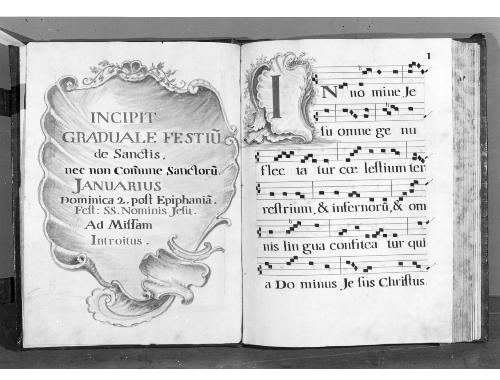 INCIPIT
GRADUALE FESTIŪ
de Sanctis,
nec non Com̄une Sanctorū.
JANUARIUS
Dominica 2. post Epiphaniā.
Fest: SS. Nominis Jesu.
Ad Missam
Introitus.
1
IN no mine Je
su omne ge nu
flec ta tur cœ lestium ter
restrium, & infernorū, & om
nis lin gua confitea tur qui
a Do minus Je sus Christus.